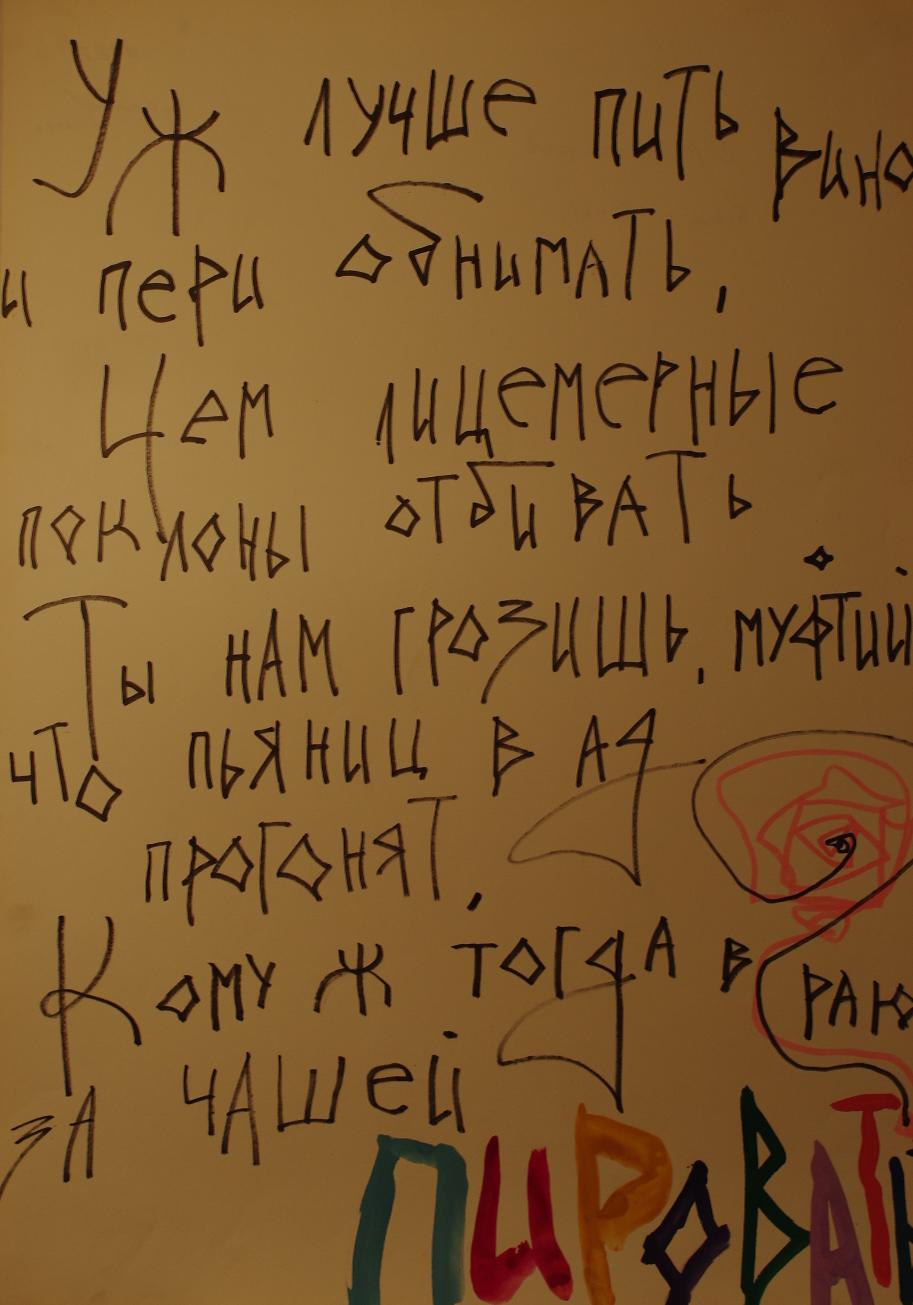 Уж лучше пить вино
и пери обнимать,
Чем лицемерные
поклоны отбивать
Ты нам грозишь, муфтий
что пьяниц в ад
прогонят,
Кому ж тогда в раю
за чашей
ПИРОВАТЬ